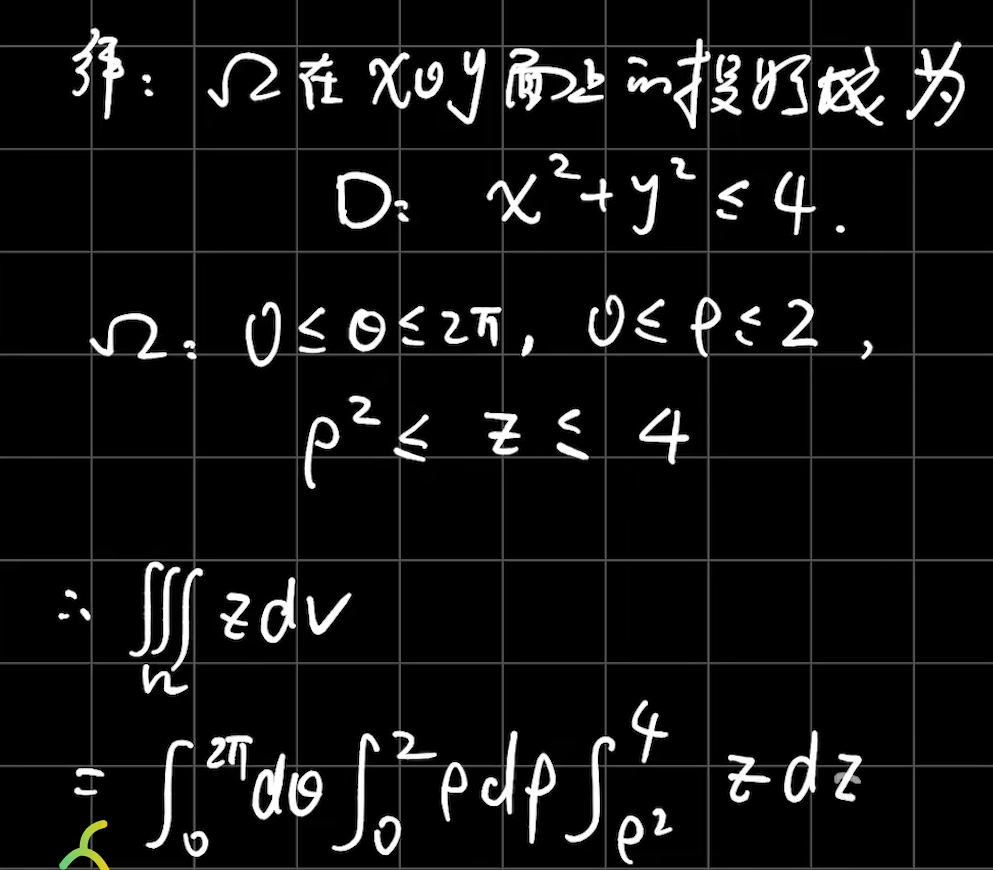 解: Ω在xoy面上的投影域为
D: x²+y²≤4.
Ω: 0≤θ≤2π, 0≤ρ≤2,
ρ²≤ z ≤ 4
∴ ∭_Ω z dv
= ∫₀^{2π} dθ ∫₀^{2} ρdρ ∫_{ρ²}^{4} z dz